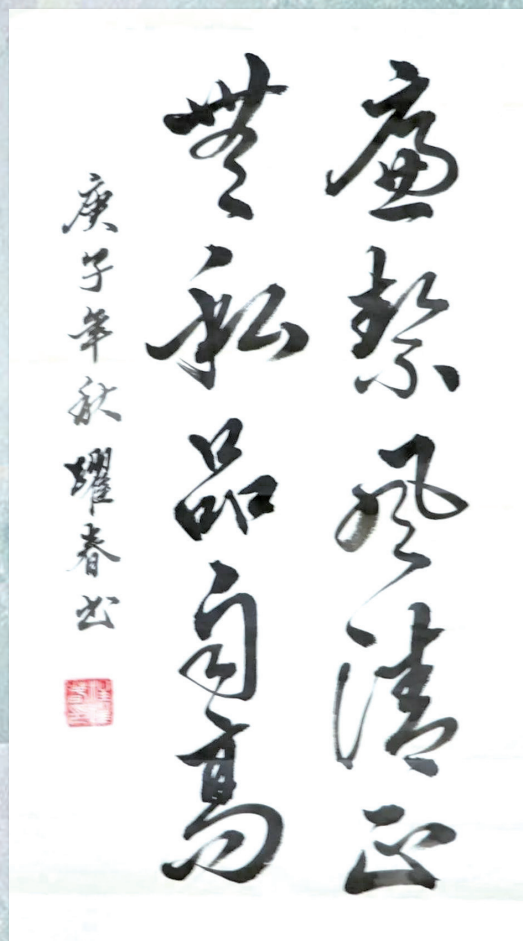 廉絜风清正
無私品自高
庚子年秋耀春书